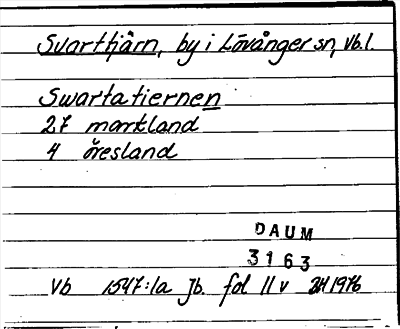 Svarttjärn, by i Lövånger sn, Vb.l.
Swartatiernen
27 markland
4 öresland
DAUM
3163
Vb 1547:1a Jb. fol 11 v 1976